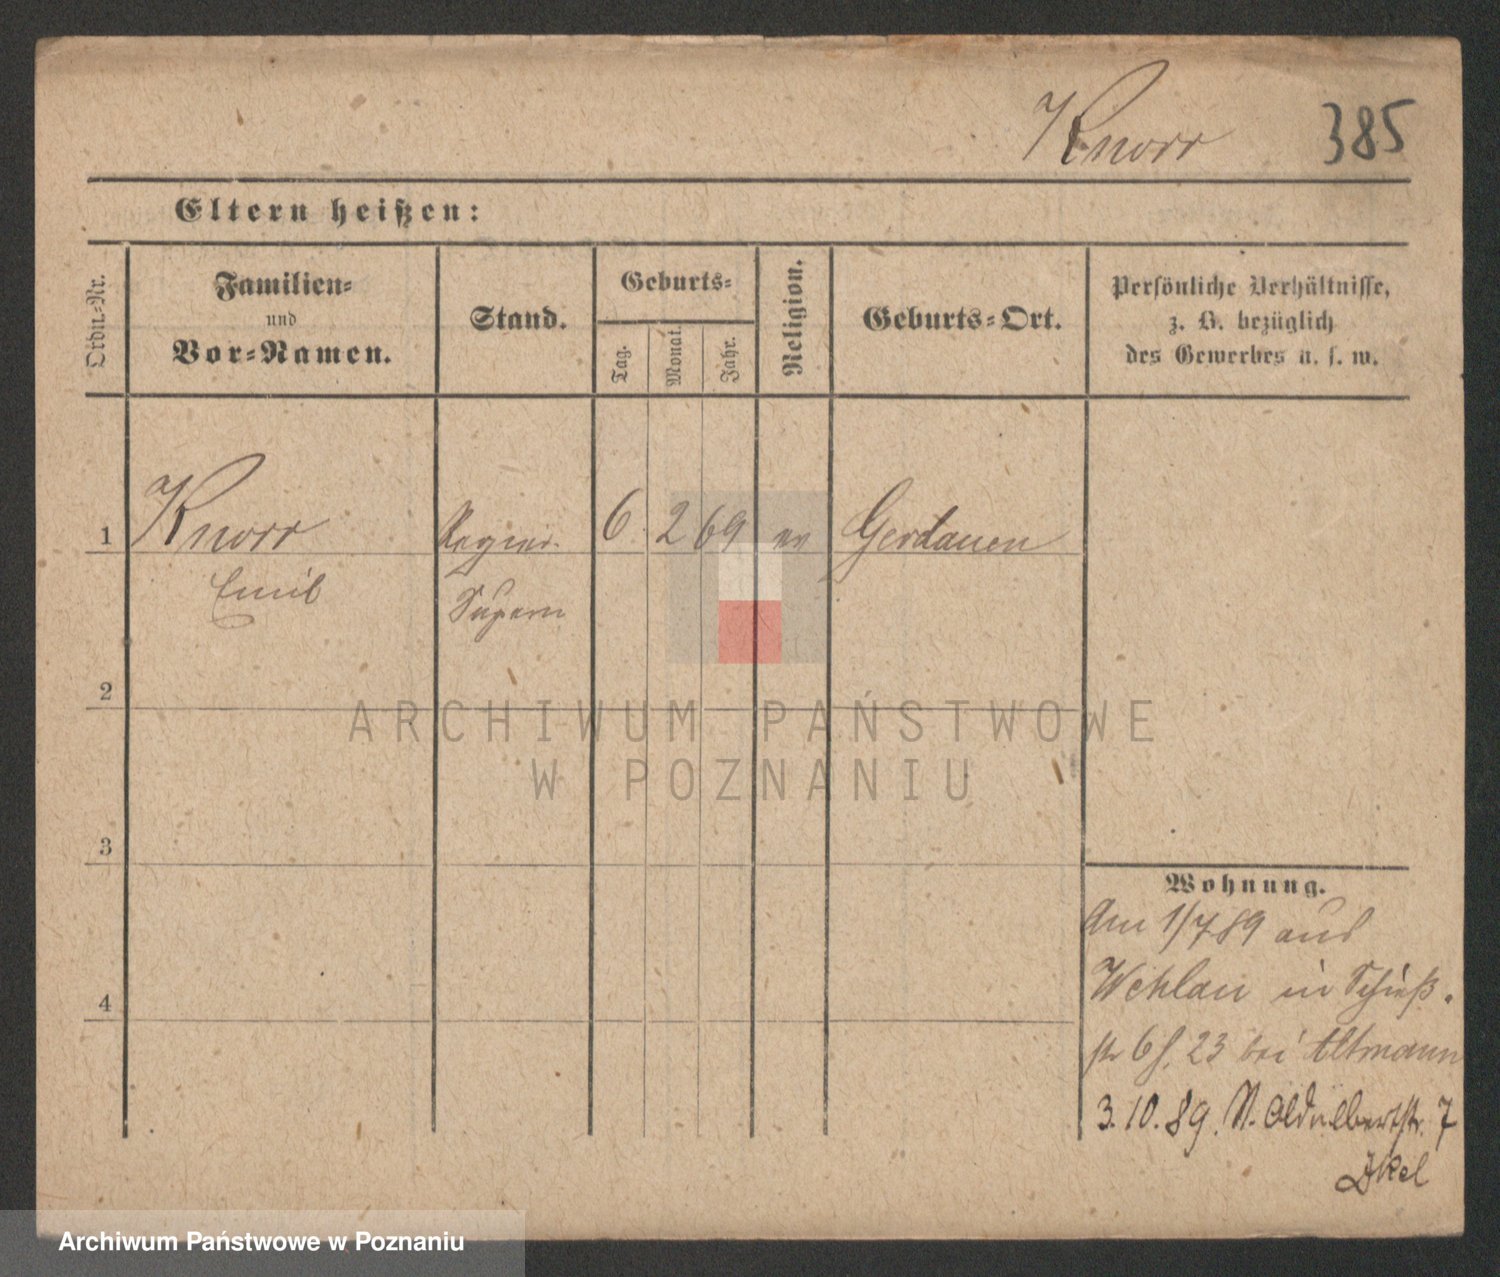 Knorr 385
Eltern heißen:
Ordn.-Nr.
Familien-
und
Vor-Namen.
Stand.
Geburts-
Tag.
Monat.
Jahr.
Religion.
Geburts-Ort.
Persönliche Verhältnisse,
z. B. bezüglich
des Gewerbes u. s. w.
1 Knorr Regier. 6. 2 69 ev Gerdauen
Emil Supern
2
3
4
Wohnung.
Am 1/7 89 aus
Wehlau in Schieß-
str 6 23 bei Altmann
3.10.89. St. Adalbertstr. 7
ARCHIWUM PAŃSTWOWE
W POZNANIU
Archiwum Państwowe w Poznaniu